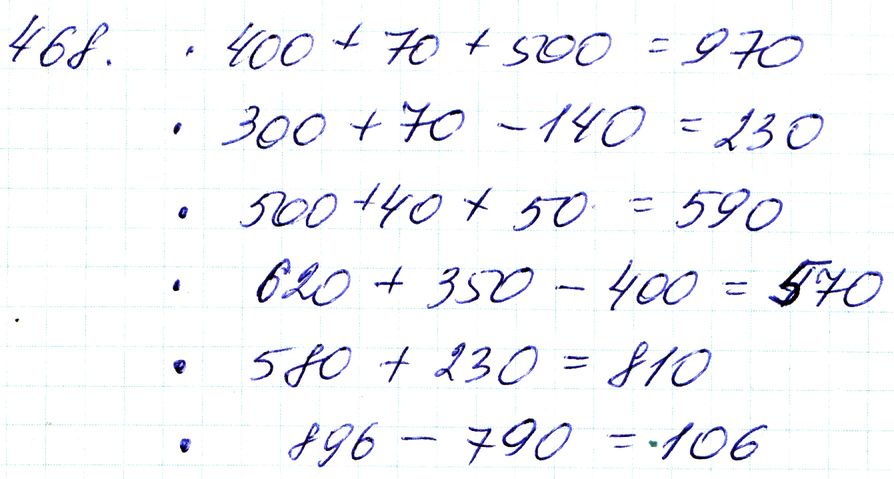 468. · 400 + 70 + 500 = 970
· 300 + 70 - 140 = 230
· 500 + 40 + 50 = 590
· 620 + 350 - 400 = 570
· 580 + 230 = 810
· 896 - 790 = 106